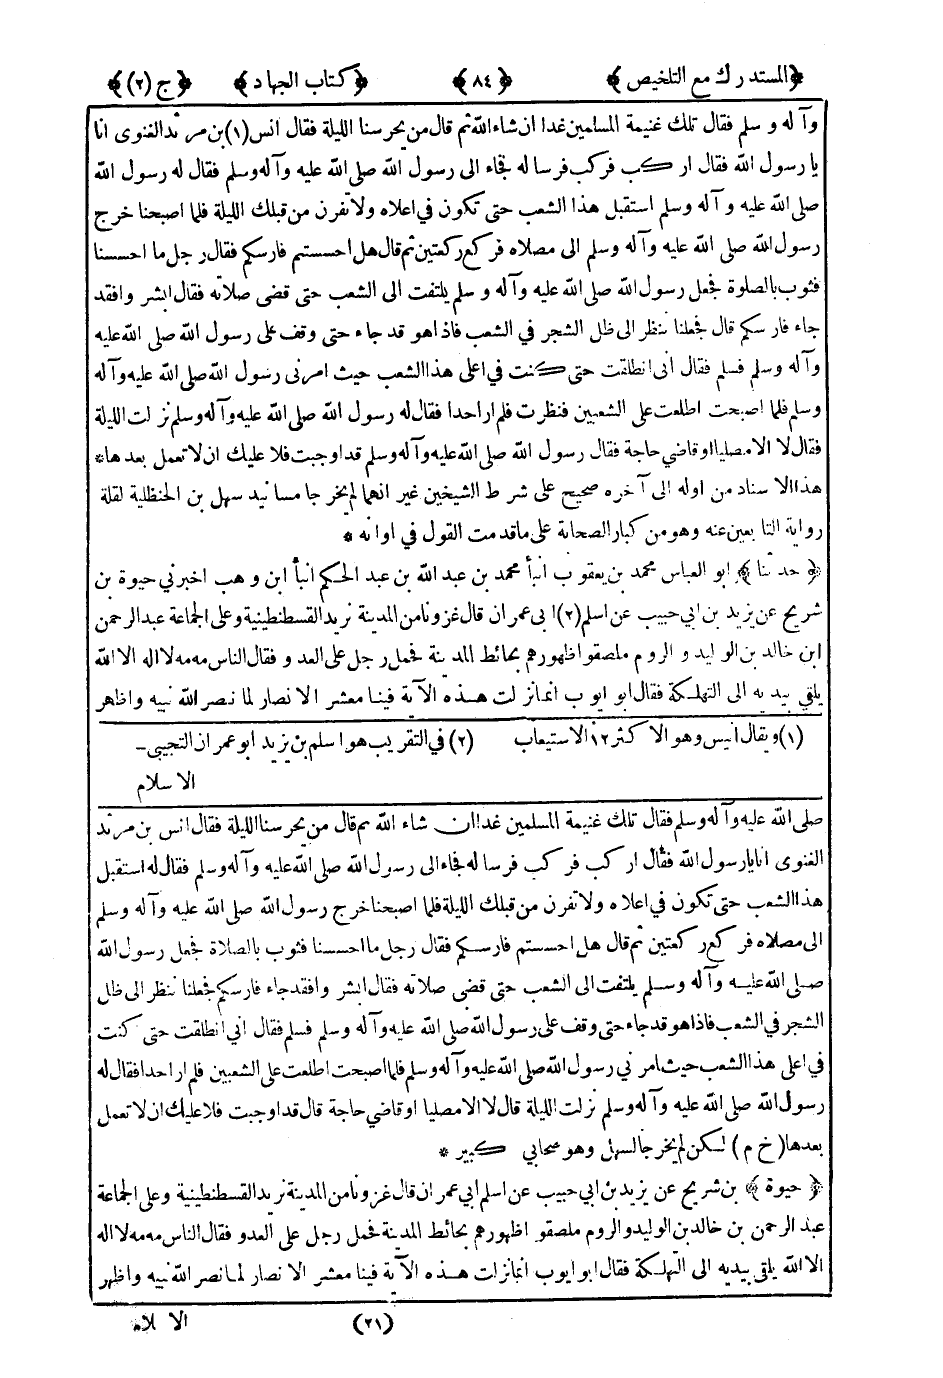 ﴿المستدرك مع التلخيص﴾ ﴿٨٤﴾ ﴿كتاب الجهاد﴾ ﴿ج (٢)﴾
وآله و سلم فقال تلك غنيمة المسلمين غدا ان شاء الله ثم قال من يحرسنا الليلة فقال انس (١) بن مرثد الغنوى انا
يا رسول الله فقال اركب فركب فرسا له فجاء الى رسول الله صلى الله عليه وآله وسلم فقال له رسول الله
صلى الله عليه وآله وسلم استقبل هذا الشعب حتى تكون في اعلاه ولا تغرن من قبلك الليلة فلما اصبحنا خرج
رسول الله صلى الله عليه وآله وسلم الى مصلاه فركع ركعتين ثم قال هل احسستم فارسكم فقال رجل ما احسسنا
فثوب بالصلوة فجعل رسول الله صلى الله عليه وآله و سلم يلتفت الى الشعب حتى قضى صلاته فقال ابشروا فقد
جاء فارسكم قال فجعلنا ننظر الى ظل الشجر في الشعب فاذا هو قد جاء حتى وقف على رسول الله صلى الله عليه
وآله وسلم فسلم فقال انى انطلقت حتى كنت في اعلى هذا الشعب حيث امرنى رسول الله صلى الله عليه وآله
وسلم فلما اصبحت اطلعت على الشعبين فنظرت فلم ار احدا فقال له رسول الله صلى الله عليه وآله وسلم نزلت الليلة
فقال لا الا مصليا او قاضي حاجة فقال رسول الله صلى الله عليه وآله وسلم قد اوجبت فلا عليك ان لا تعمل بعدها*
هذا الاسناد من اوله الى آخره صحيح على شرط الشيخين غير انهما لم يخرجا مسانيد سهل بن الحنظلية لقلة
رواية التابعين عنه وهو من كبار الصحابة على ما قدمت القول في اوانه *
﴿حدثنا﴾ ابو العباس محمد بن يعقوب انبأ محمد بن عبد الله بن عبد الحكم انبأ ابن وهب اخبرني حيوة بن
شريح عن يزيد بن ابي حبيب عن اسلم (٢) ابى عمران قال غزونا من المدينة نريد القسطنطينية وعلى الجماعة عبد الرحمن
ابن خالد بن الوليد و الروم ملصقو اظهورهم بحائط المدينة فحمل رجل على العدو فقال الناس مه مه لا اله الا الله
يلقي بيديه الى التهلكة فقال ابو ايوب انما نزلت هذه الآية فينا معشر الانصار لما نصر الله نبيه واظهر
(١) ويقال انيس وهو الاكثر ١٢ الاستيعاب (٢) في التقريب هو اسلم بن يزيد ابو عمران التجيبي–
الاسلام
صلى الله عليه وآله وسلم فقال تلك غنيمة المسلمين غدا ان شاء الله ثم قال من يحرسنا الليلة فقال انس بن مرثد
الغنوى انا يا رسول الله فقال اركب فركب فرسا له فجاء الى رسول الله صلى الله عليه وآله وسلم فقال له استقبل
هذا الشعب حتى تكون في اعلاه ولا تغرن من قبلك الليلة فلما اصبحنا خرج رسول الله صلى الله عليه وآله وسلم
الى مصلاه فركع ركعتين ثم قال هل احسستم فارسكم فقال رجل ما احسسنا فثوب بالصلاة فجعل رسول الله
صلى الله عليه وآله وسلم يلتفت الى الشعب حتى قضى صلاته فقال ابشروا فقد جاء فارسكم فجعلنا ننظر الى ظل
الشجر في الشعب فاذا هو قد جاء حتى وقف على رسول الله صلى الله عليه وآله وسلم فسلم فقال انى انطلقت حتى كنت
في اعلى هذا الشعب حيث امرني رسول الله صلى الله عليه وآله وسلم فلما اصبحت اطلعت على الشعبين فلم ار احدا فقال له
رسول الله صلى الله عليه وآله وسلم نزلت الليلة قال لا الا مصليا او قاضي حاجة قال قد اوجبت فلا عليك ان لا تعمل
بعدها (خ م) لكن لم يخرجا لسهل وهو صحابي كبير *
﴿حيوة﴾ بن شريح عن يزيد بن ابي حبيب عن اسلم ابي عمران قال غزونا من المدينة نريد القسطنطينية وعلى الجماعة
عبد الرحمن بن خالد بن الوليد والروم ملصقو اظهورهم بحائط المدينة فحمل رجل على العدو فقال الناس مه مه لا اله
الا الله يلقى بيديه الى التهلكة فقال ابو ايوب انما نزلت هذه الآية فينا معشر الانصار لما نصر الله نبيه واظهر
(٢١) الاسلام